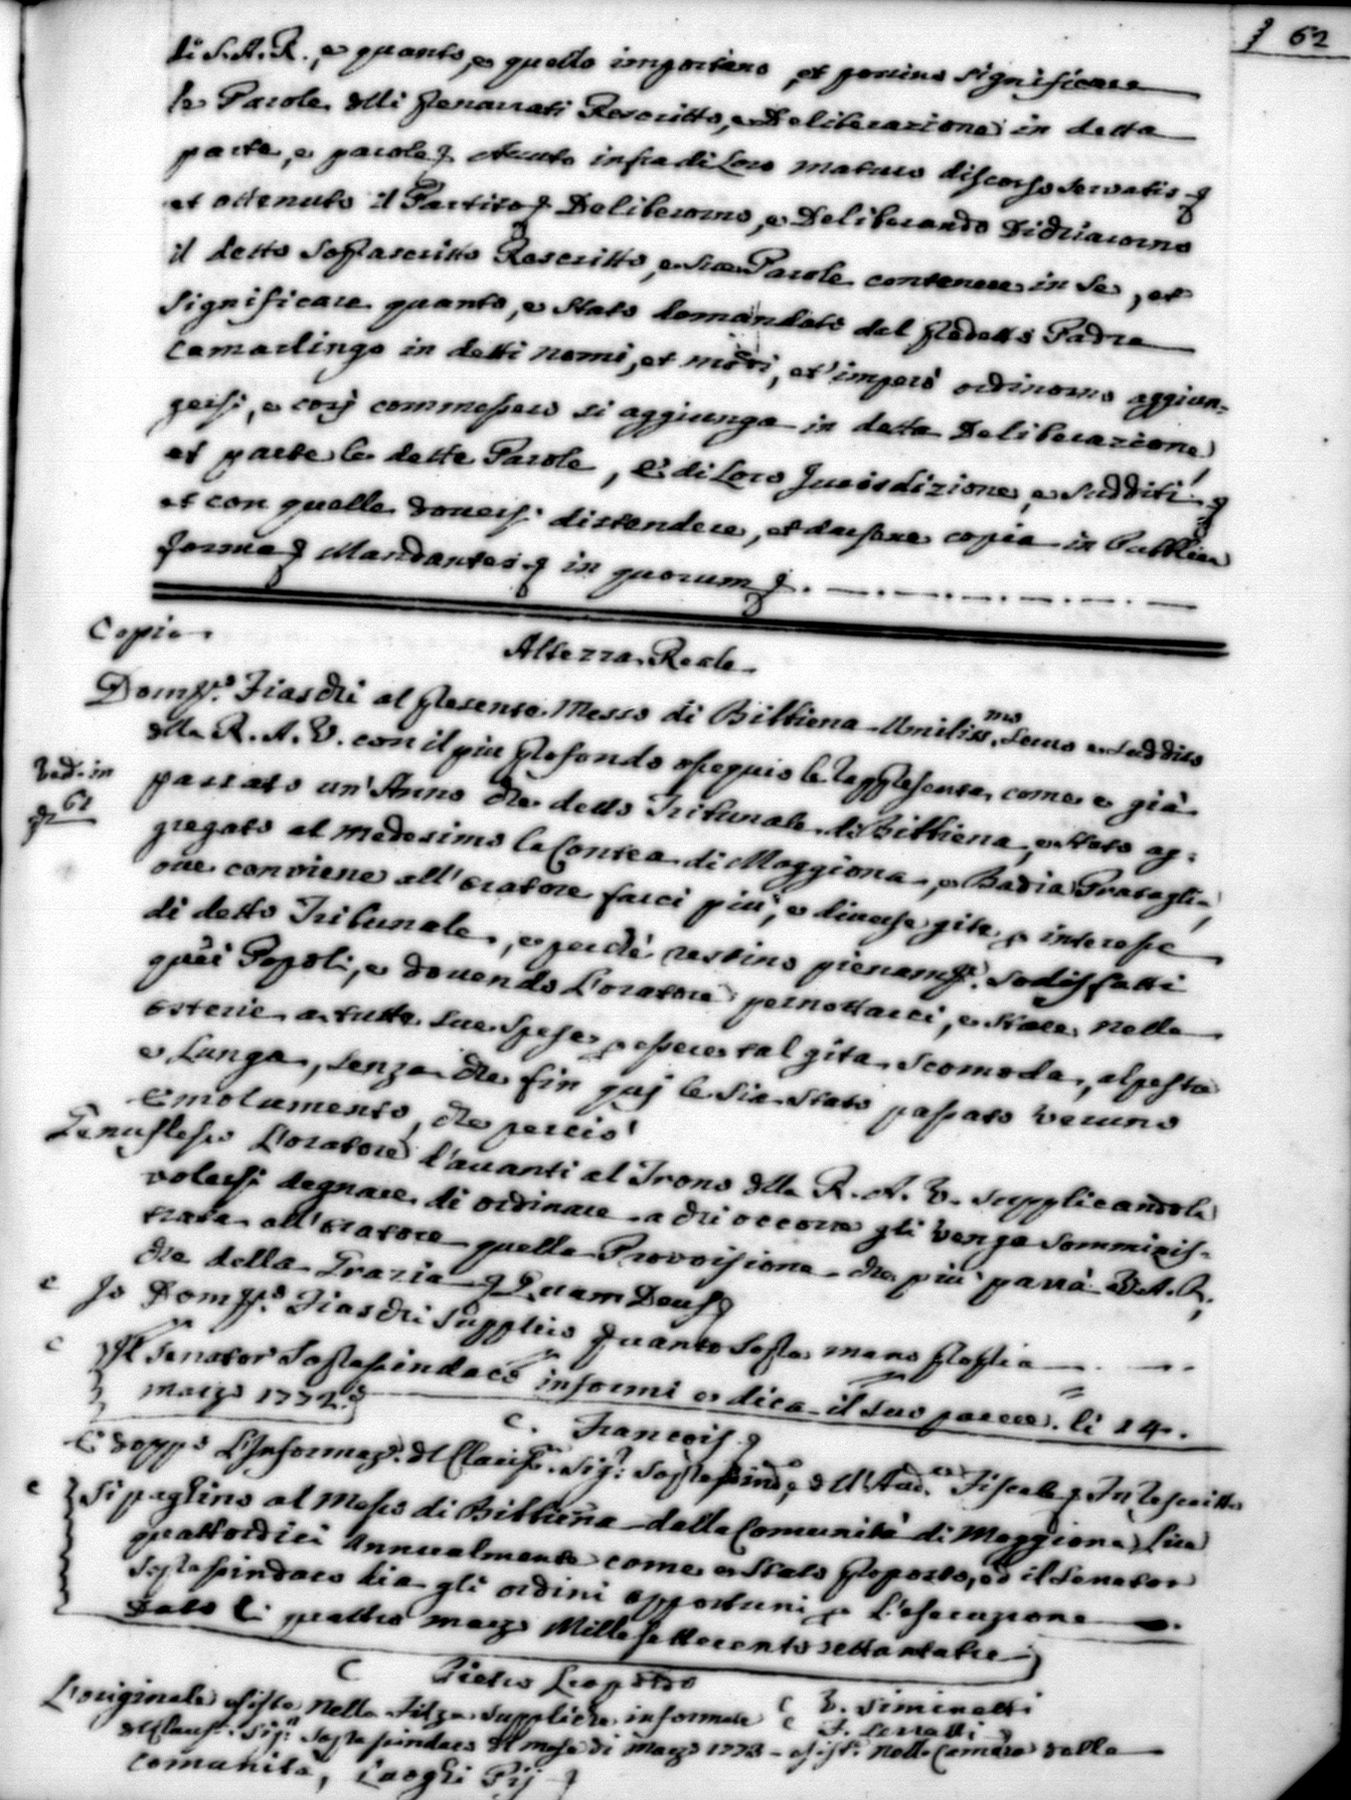 62
di S. A. R., e quanto, e quello importano, et possino significare
le Parole delli Prenarrati Rescritto, e Deliberazione in detta
parte, e parole Auuto infra di Loro maturo discorso servatis
et ottenuto il Partito Deliberorno, e Deliberando Dichiarorno
il detto Soprascritto Rescritto, e sue Parole contenere in se, et
significare quanto, e stato domandato dal Predetto Padre
Camarlingo in detti nomi, et modi, et imperò ordinorno aggiun=
gersi, e così commessero si aggiunga in detta Deliberazione,
et parte le detta Parole, E di Loro Jurisdizione, e Sudditi
et con quelle douersi distendere, et darsene copia in Pubblica
forma Mandantes in quorum
Copia
Altezza Reale
Domco. Fiaschi al Presente Messo di Bibbiena Umiliss.mo Servo e Suddito
della R. A. V. con il piu Profondo ossequio le Rappresenta, come e già
Ved. in
61
passato un'Anno che detto Tribunale di Bibbiena, e stato ag=
gregato al medesimo la Contea di Moggiona, e Badia Prataglia,
oue conviene all'oratore farci piu, e diuerse gite p. interesse
di detto Tribunale, e perchè restino pienamte. Sodisfatti
quei Popoli, e douendo L'oratore pernottarci, e stare nelle
osterie a tutte sue spese, p. essere tal gita scomoda, alpestre
e Lunga, senza che fin qui le sia stato passato veruno
Emolumento, che perciò
Genuflesso L'oratore d'auanti al Trono della R. A. V. supplicandola
volersi degnare di ordinare a chi occorre gli venga somminis=
trata all'oratore quella Provoisione che piu parrà a V. A. R.,
che della Grazia Quam Deus
Jo Domco. Fiaschi Supplico quanto Sopra mano Propria
Il Senator Soprasindaco informi e dica il suo parere. li 14.
marzo 1772.
Francois
E doppo L'Informaz. del Clariss. Sig. Soprasind.o, e dell'Aud.re Fiscale In Rescritto
Si paghino al Messo di Bibbiena dalla Comunità di Moggiona Lire
quattordici Annualmente come e stato Proposto, ed il Senator
Soprasindaco dia gli ordini opportuni p. L'esecuzione
Dato li quattro marzo Mille settecento settantatre
Pietro Leopoldo
V. Siminetti
L'originale esiste nella Filza Suppliche informate
F. Serratti
del Clariss. Sig.r Soprasindaco del mese di Marzo 1773 = esist. nella Camera delle
Comunità, Luoghi Pij